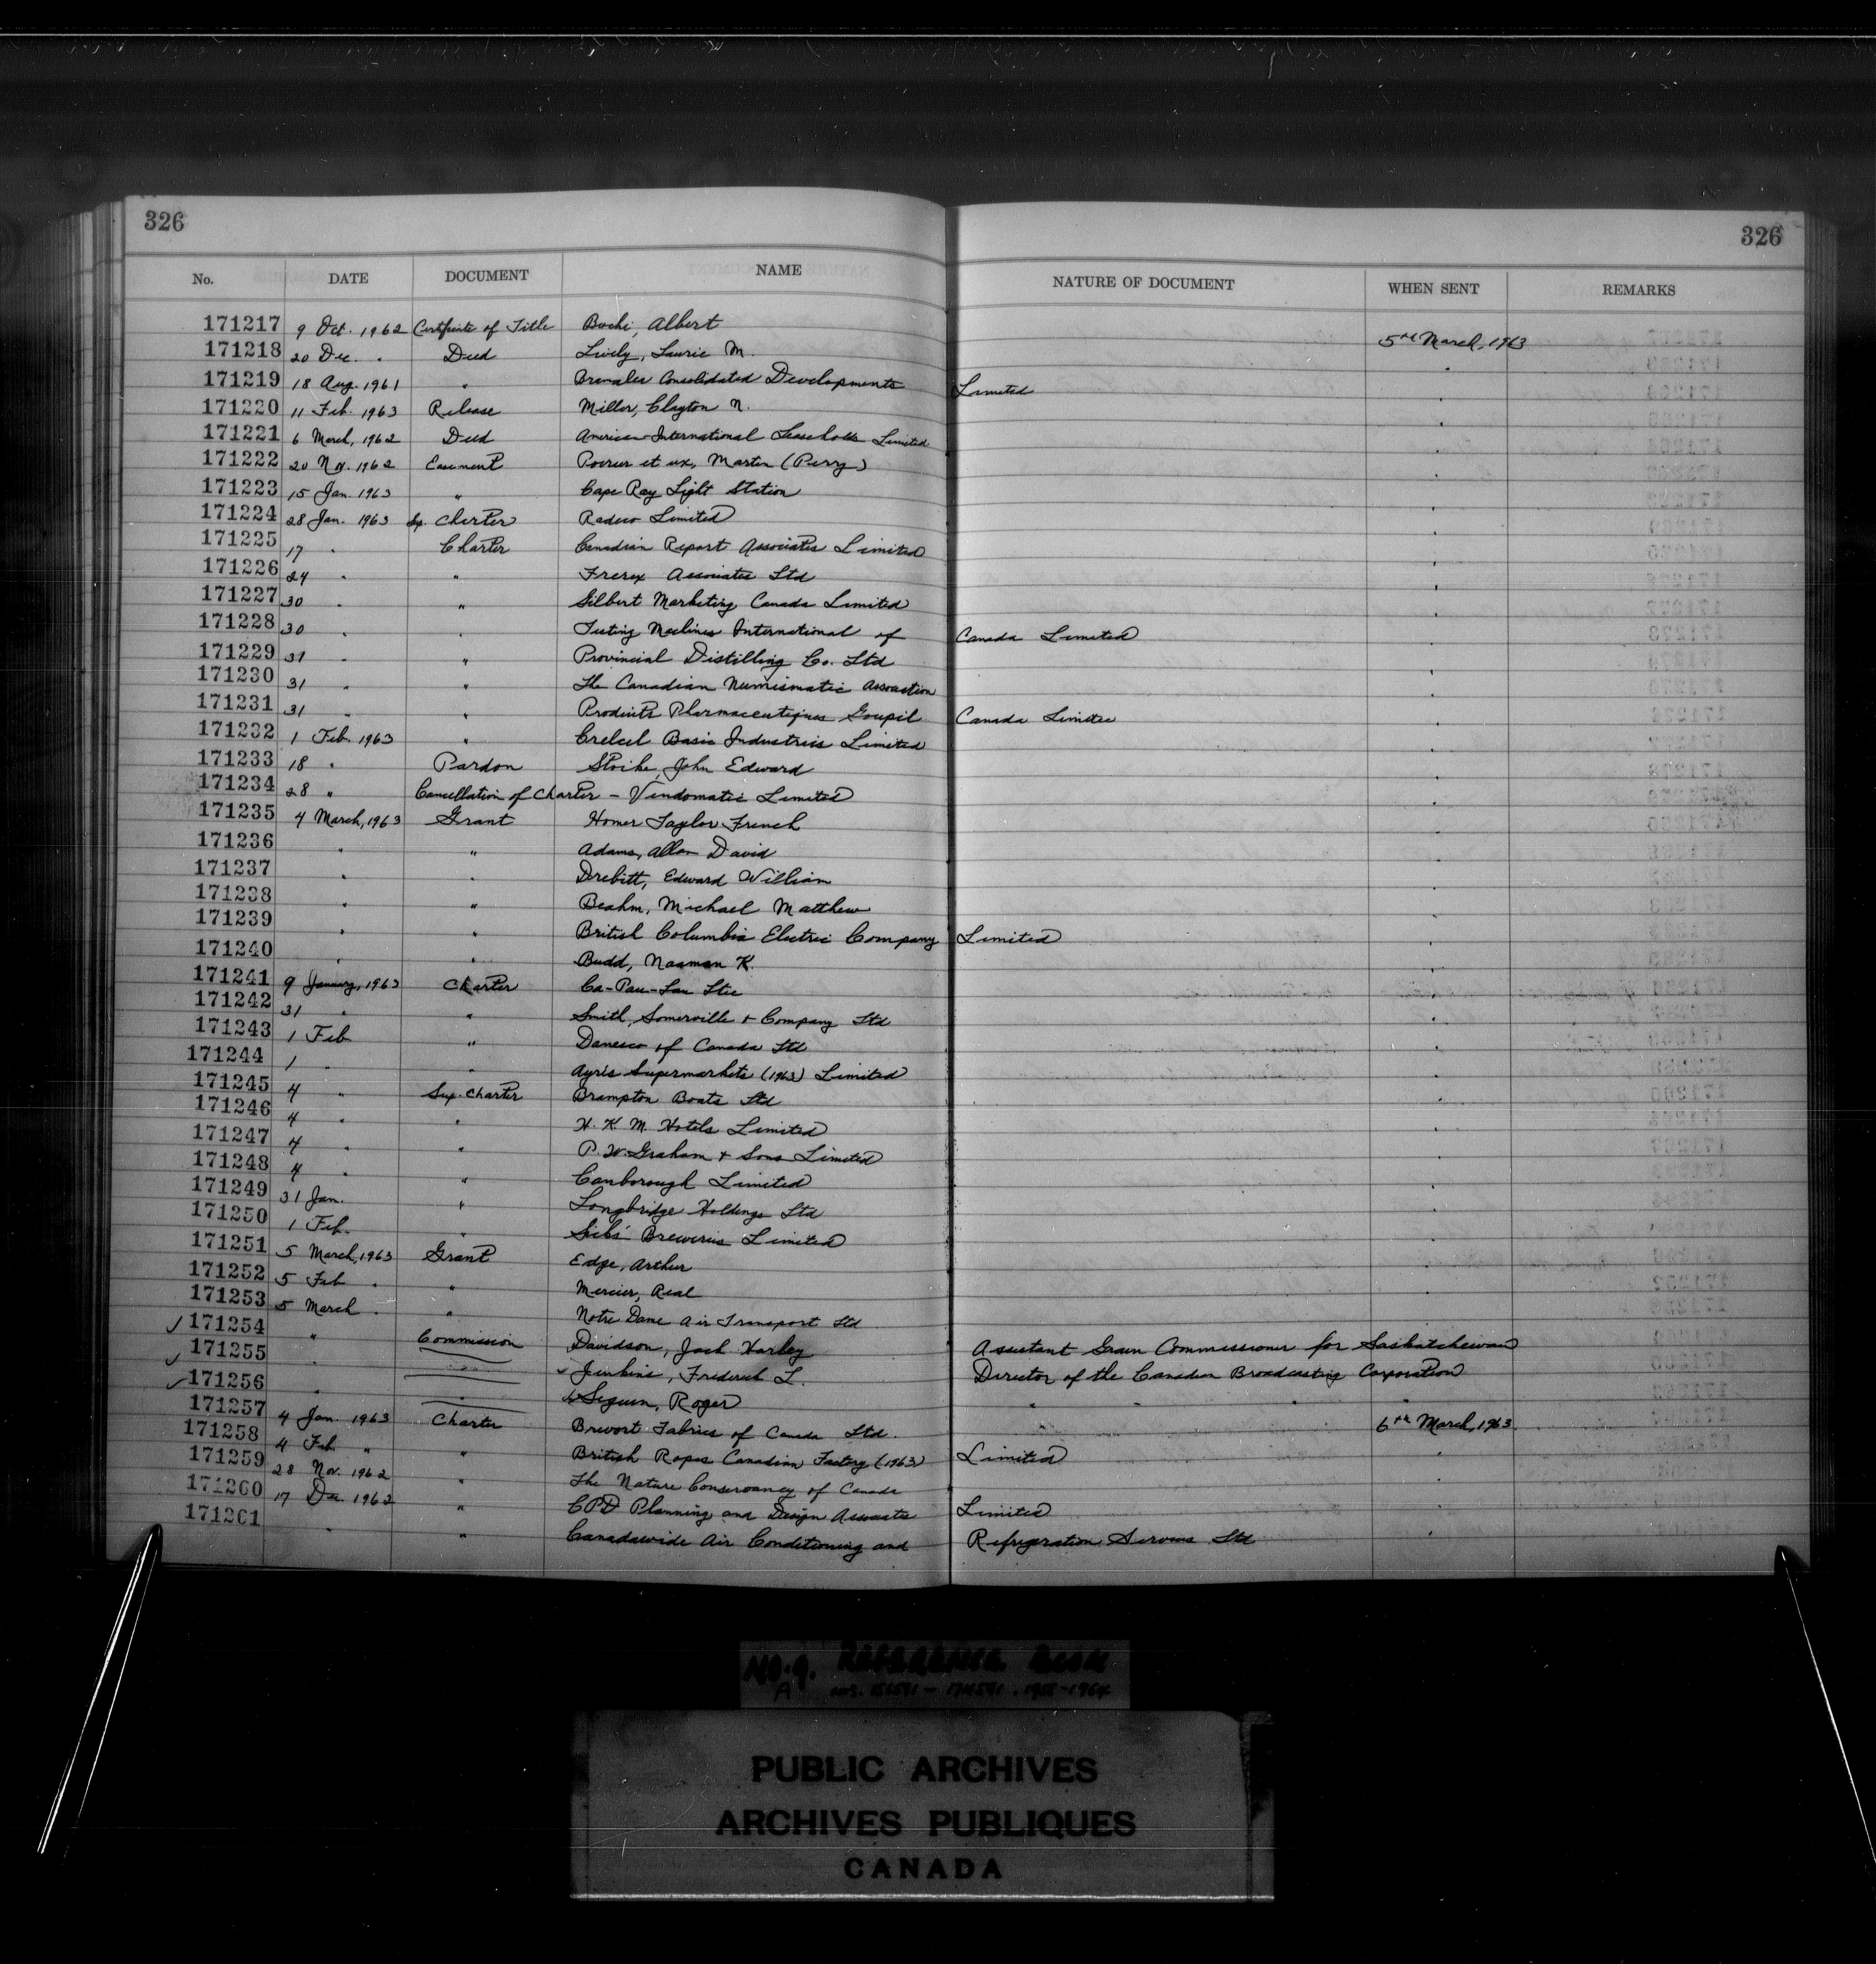 326 326
No. DATE DOCUMENT NAME NATURE OF DOCUMENT WHEN SENT REMARKS
171217 9 Oct. 1962 Certificate of Title Bochi, Albert 5th March, 1963
171218 20 Dec. " Deed Lively, Laurie M. "
171219 18 Aug. 1961 " Bramalea Consolidated Developments Limited "
171220 11 Feb. 1963 Release Miller, Clayton N. "
171221 6 March, 1962 Deed American-International Leaseholds Limited "
171222 20 Nov. 1962 Easement Poirier et ux, Martin (Percy) "
171223 15 Jan. 1963 " Cape Ray Light Station "
171224 28 Jan. 1963 Sp. Charter Radeco Limited "
171225 17 " Charter Canadian Report Associates Limited "
171226 24 " " Frerex Associates Ltd "
171227 30 " " Gilbert Marketing Canada Limited "
171228 30 " " Testing Machines International of Canada Limited "
171229 31 " " Provincial Distilling Co. Ltd "
171230 31 " " The Canadian Numismatic Association "
171231 31 " " Produits Pharmaceutiques Goupil Canada Limitee "
171232 1 Feb. 1963 " Basic Industries Limited "
171233 18 " Pardon Stoike, John Edward "
171234 28 " Cancellation of Charter - Vendomatic Limited "
171235 4 March, 1963 Grant Homer Taylor French "
171236 " " Adams, Allan David "
171237 " " Drebitt, Edward William "
171238 " " Beahm, Michael Matthew "
171239 " " British Columbia Electric Company Limited "
171240 " " Budd, Naaman K. "
171241 9 January, 1963 Charter Ca-Pau-Lau Ltee "
171242 31 " " Smith, Somerville & Company Ltd "
171243 1 Feb " Danesco of Canada Ltd "
171244 1 " " Ayr's Supermarkets (1963) Limited "
171245 4 " Sup. Charter Brampton Boats Ltd "
171246 4 " " H. K. M. Hotels Limited "
171247 4 " " P. W. Graham & Sons Limited "
171248 4 " " Canborough Limited "
171249 31 Jan. " Longbridge Holdings Ltd "
171250 1 Feb. " Breweries Limited "
171251 5 March, 1963 Grant Edge, Arthur "
171252 5 Feb " " Mercier, Real "
171253 5 March " " Notre Dame Air Transport Ltd "
✓ 171254 " Commission Davidson, Jack Harley Assistant Grain Commissioner for Saskatchewan
✓ 171255 " " Jenkins, Frederick L. Director of the Canadian Broadcasting Corporation
✓ 171256 " " Seguin, Roger " " " "
171257 4 Jan. 1963 Charter Brevort Fabrics of Canada Ltd. 6th March, 1963
171258 4 Feb. " " British Ropes Canadian Factory (1963) Limited "
171259 28 Nov. 1962 " The Nature Conservancy of Canada "
171260 17 Dec 1962 " CPD Planning and Design Associates Limited "
171261 " " Canadawide Air Conditioning and Refrigeration Services Ltd "
NO. 9. REFERENCE BOOK
A nos. 156591 - 174591 . 1955-1964
PUBLIC ARCHIVES
ARCHIVES PUBLIQUES
CANADA